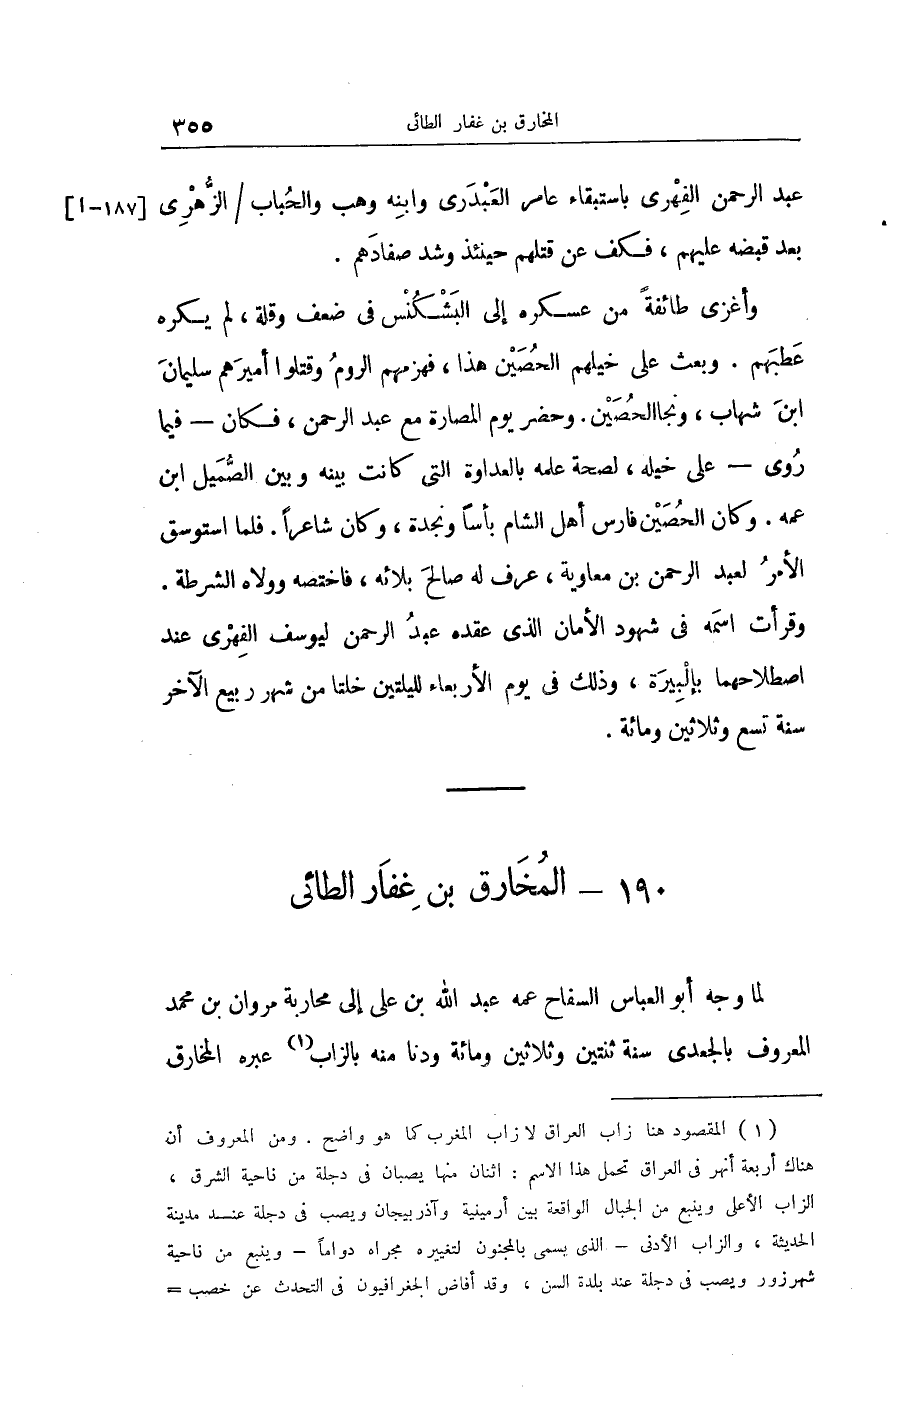 المخارق بن غفار الطائى ٣٥٥
عبد الرحمن الفِهْرى باستبقاء عامر العَبْدَرى وابنِه وهب والحُباب / الزُّهْرِى [١٨٧-ا]
بعد قبضه عليهم ، فكف عن قتلهم حينئذ وشد صفادَهم .
وأغزى طائفةً من عسكره إلى البَشْكُنْس فى ضعف وقلة ، لم يكره
عَطبَهم . وبعث على خيلهم الحُصَيْن هذا ، فهزمهم الرومُ وقتلوا أميرَهم سليمانَ
ابنَ شهاب ، ونجا الحُصَيْن . وحضر يوم المصارة مع عبد الرحمن ، فكان — فيما
رُوى — على خيله ، لصحة علمه بالعداوة التى كانت بينه وبين الصُّمَيل ابن
عمه . وكان الحُصَيْن فارس أهل الشام بأساً ونجدة ، وكان شاعراً . فلما استوسق
الأمرُ لعبد الرحمن بن معاوية ، عرف له صالحَ بلائه ، فاختصه وولاه الشرطة .
وقرأت اسمَه فى شهود الأمان الذى عقده عبدُ الرحمن ليوسف الفِهْرى عند
اصطلاحهما بإلْبِيرَة ، وذلك فى يوم الأربعاء لليلتين خلتا من شهر ربيع الآخر
سنة تسع وثلاثين ومائة .
١٩٠ – المُخَارق بن غِفَار الطائى
لما وجه أبو العباس السفاح عمه عبد الله بن على إلى محاربة مروان بن محمد
المعروف بالجعدى سنة ثنتين وثلاثين ومائة ودنا منه بالزاب(١) عبره المخارق
(١) المقصود هنا زاب العراق لا زاب المغرب كما هو واضح . ومن المعروف أن
هناك أربعة أنهر فى العراق تحمل هذا الاسم : اثنان منها يصبان فى دجلة من ناحية الشرق ،
الزاب الأعلى وينبع من الجبال الواقعة بين أرمينية وآذربيجان ويصب فى دجلة عند مدينة
الحديثة ، والزاب الأدنى – الذى يسمى بالمجنون لتغييره مجراه دواماً – وينبع من ناحية
شهرزور ويصب فى دجلة عند بلدة السن ، وقد أفاض الجغرافيون فى التحدث عن خصب =